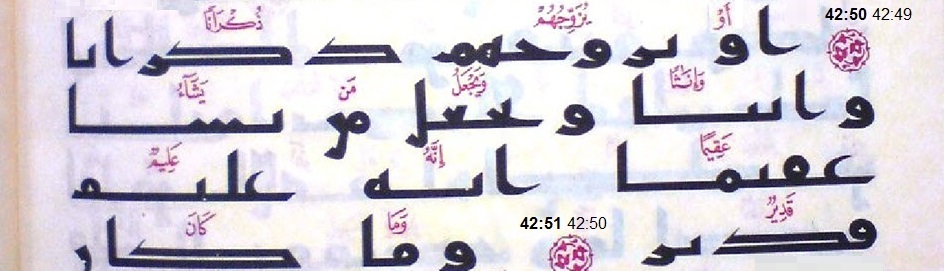 42:50 42:49
أَوْ يُزَوِّجُهُمْ ذُكْرَانًا
او يزوجهم ذكرانا
وَإِنَٰثًا وَيَجْعَلُ مَن يَشَآءُ
وانثا ويجعل من يشا
عَقِيمًا إِنَّهُ عَلِيمٌ
عقيما انه عليم
قَدِيرٌ 42:51 42:50 وَمَا كَانَ
قدير وما كان